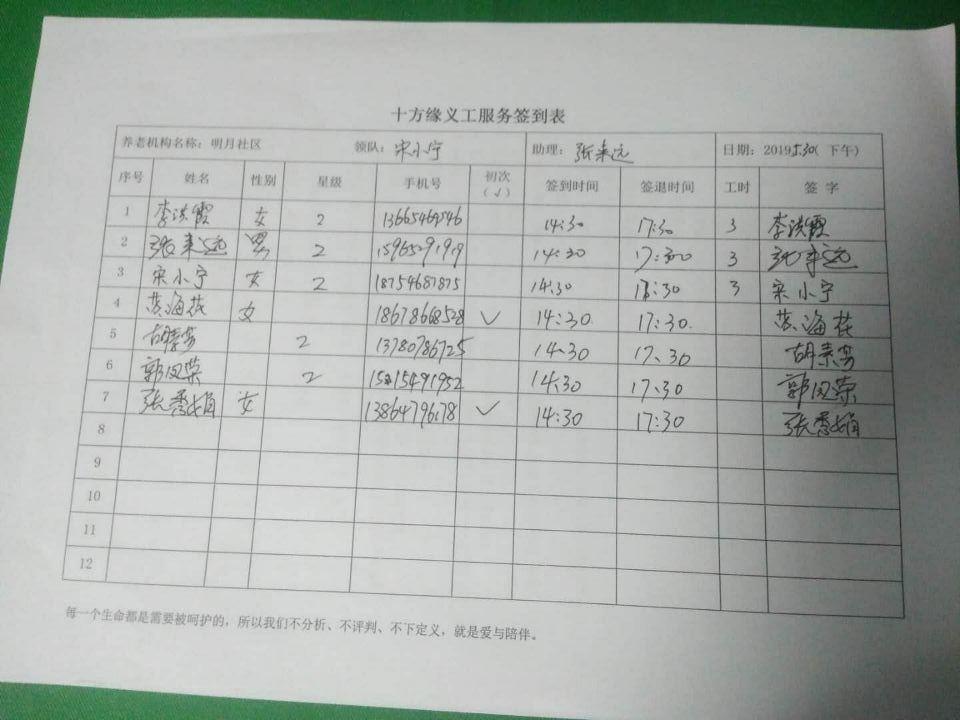 十方缘义工服务签到表
养老机构名称：明月社区 领队：宋小宁 助理：张来远 日期：2019 5.30（下午）
序号 姓名 性别 星级 手机号 初次（√） 签到时间 签退时间 工时 签 字
1 李洪霞 女 2 13665469546 14:30 17:30 3 李洪霞
2 张来远 男 2 15965291919 14:30 17:30 3 张来远
3 宋小宁 女 2 18754687875 14:30 17:30 3 宋小宁
4 苏海花 女 18678668528 √ 14:30. 17:30. 苏海花
5 胡素芳 2 13780786725 14:30 17:30 胡素芳
6 郭凤荣 2 15215491952 14:30 17:30 郭凤荣
7 张秀娟 女 13864796178 √ 14:30 17:30 张秀娟
8
9
10
11
12
每一个生命都是需要被呵护的，所以我们不分析、不评判、不下定义，就是爱与陪伴。